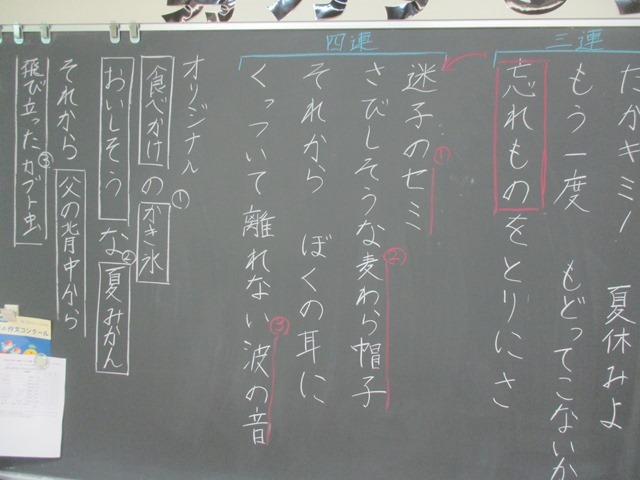 三連
夏休みよ
もう一度 もどってこないか
だがキミ
忘れものをとりにさ
四連
迷子のセミ ①
さびしそうな麦わら帽子 ②
それから ぼくの耳に
くっついて離れない波の音 ③
オリジナル
食べかけのかき氷 ①
おいしそうな夏みかん ②
それから 父の背中から
飛び立ったカブト虫 ③